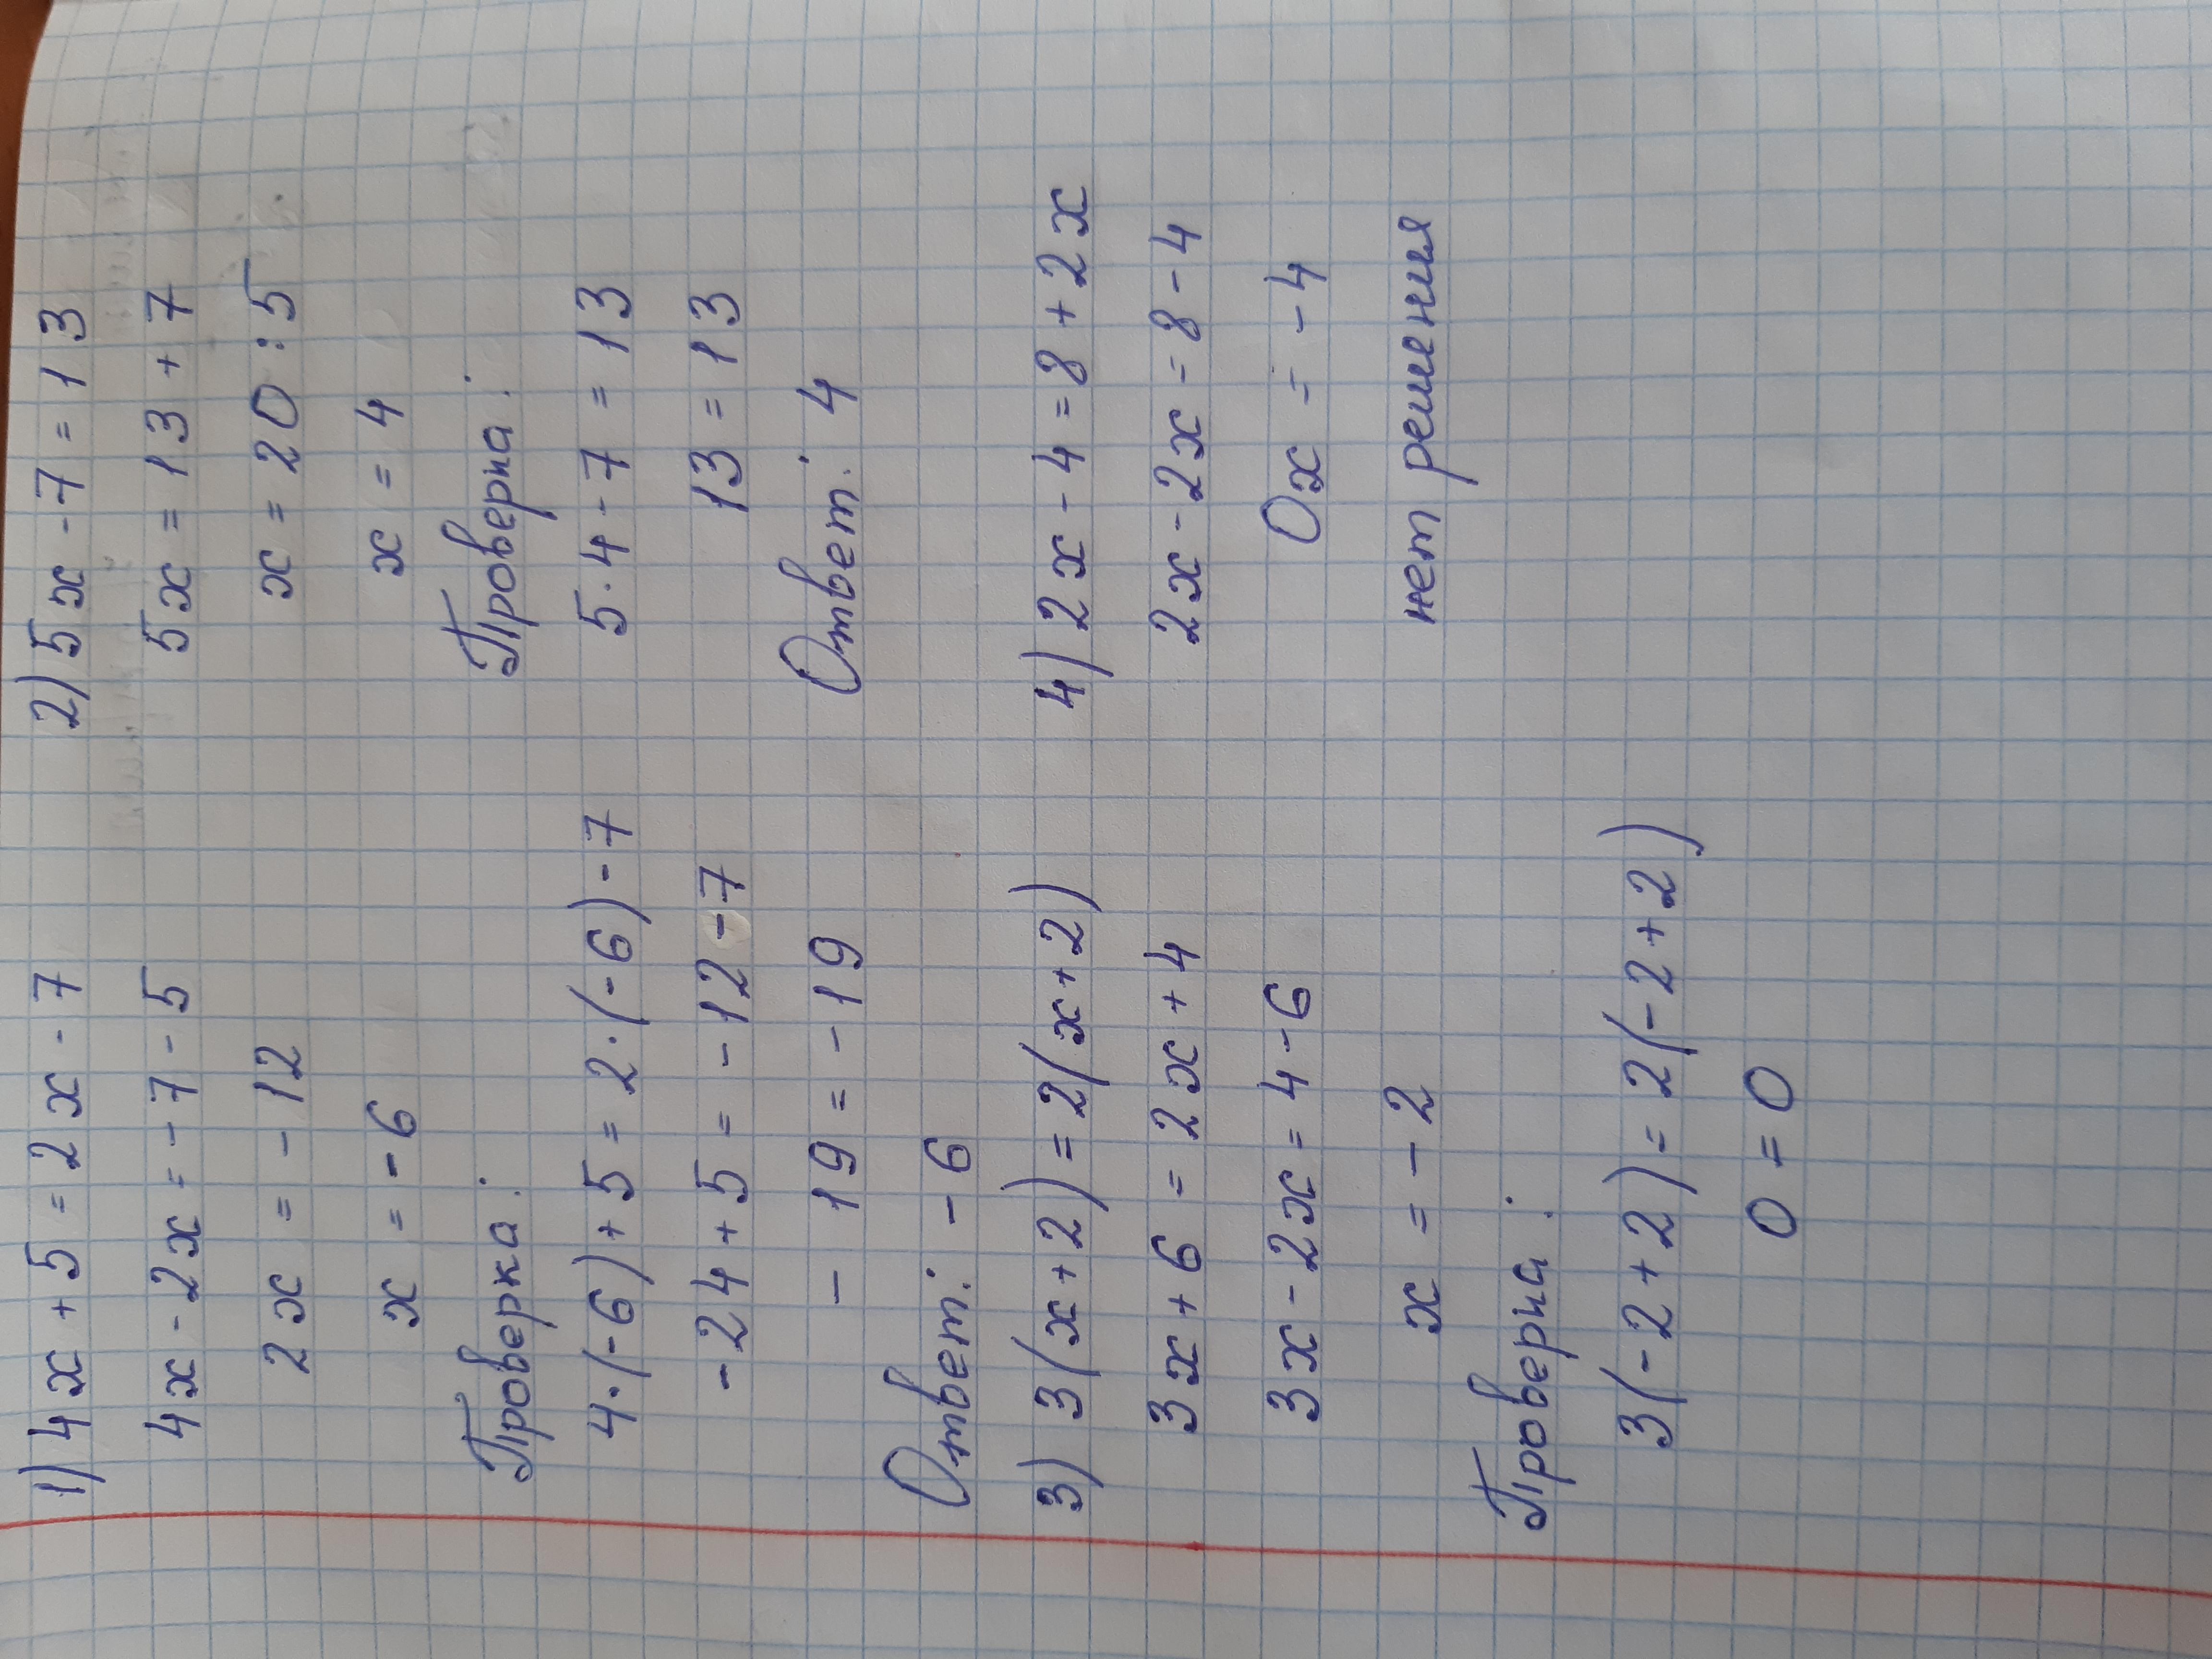 1) 4x + 5 = 2x - 7
4x - 2x = - 7 - 5
2x = - 12
x = - 6
Проверка:
4·(-6) + 5 = 2·(-6) - 7
- 24 + 5 = - 12 - 7
- 19 = - 19
Ответ: - 6
2) 5x - 7 = 13
5x = 13 + 7
x = 20 : 5
x = 4
Проверка:
5·4 - 7 = 13
13 = 13
Ответ: 4
3) 3(x + 2) = 2(x + 2)
3x + 6 = 2x + 4
3x - 2x = 4 - 6
x = - 2
Проверка:
3(- 2 + 2) = 2(- 2 + 2)
0 = 0
4) 2x - 4 = 8 + 2x
2x - 2x = 8 - 4
0x = - 4
нет решения